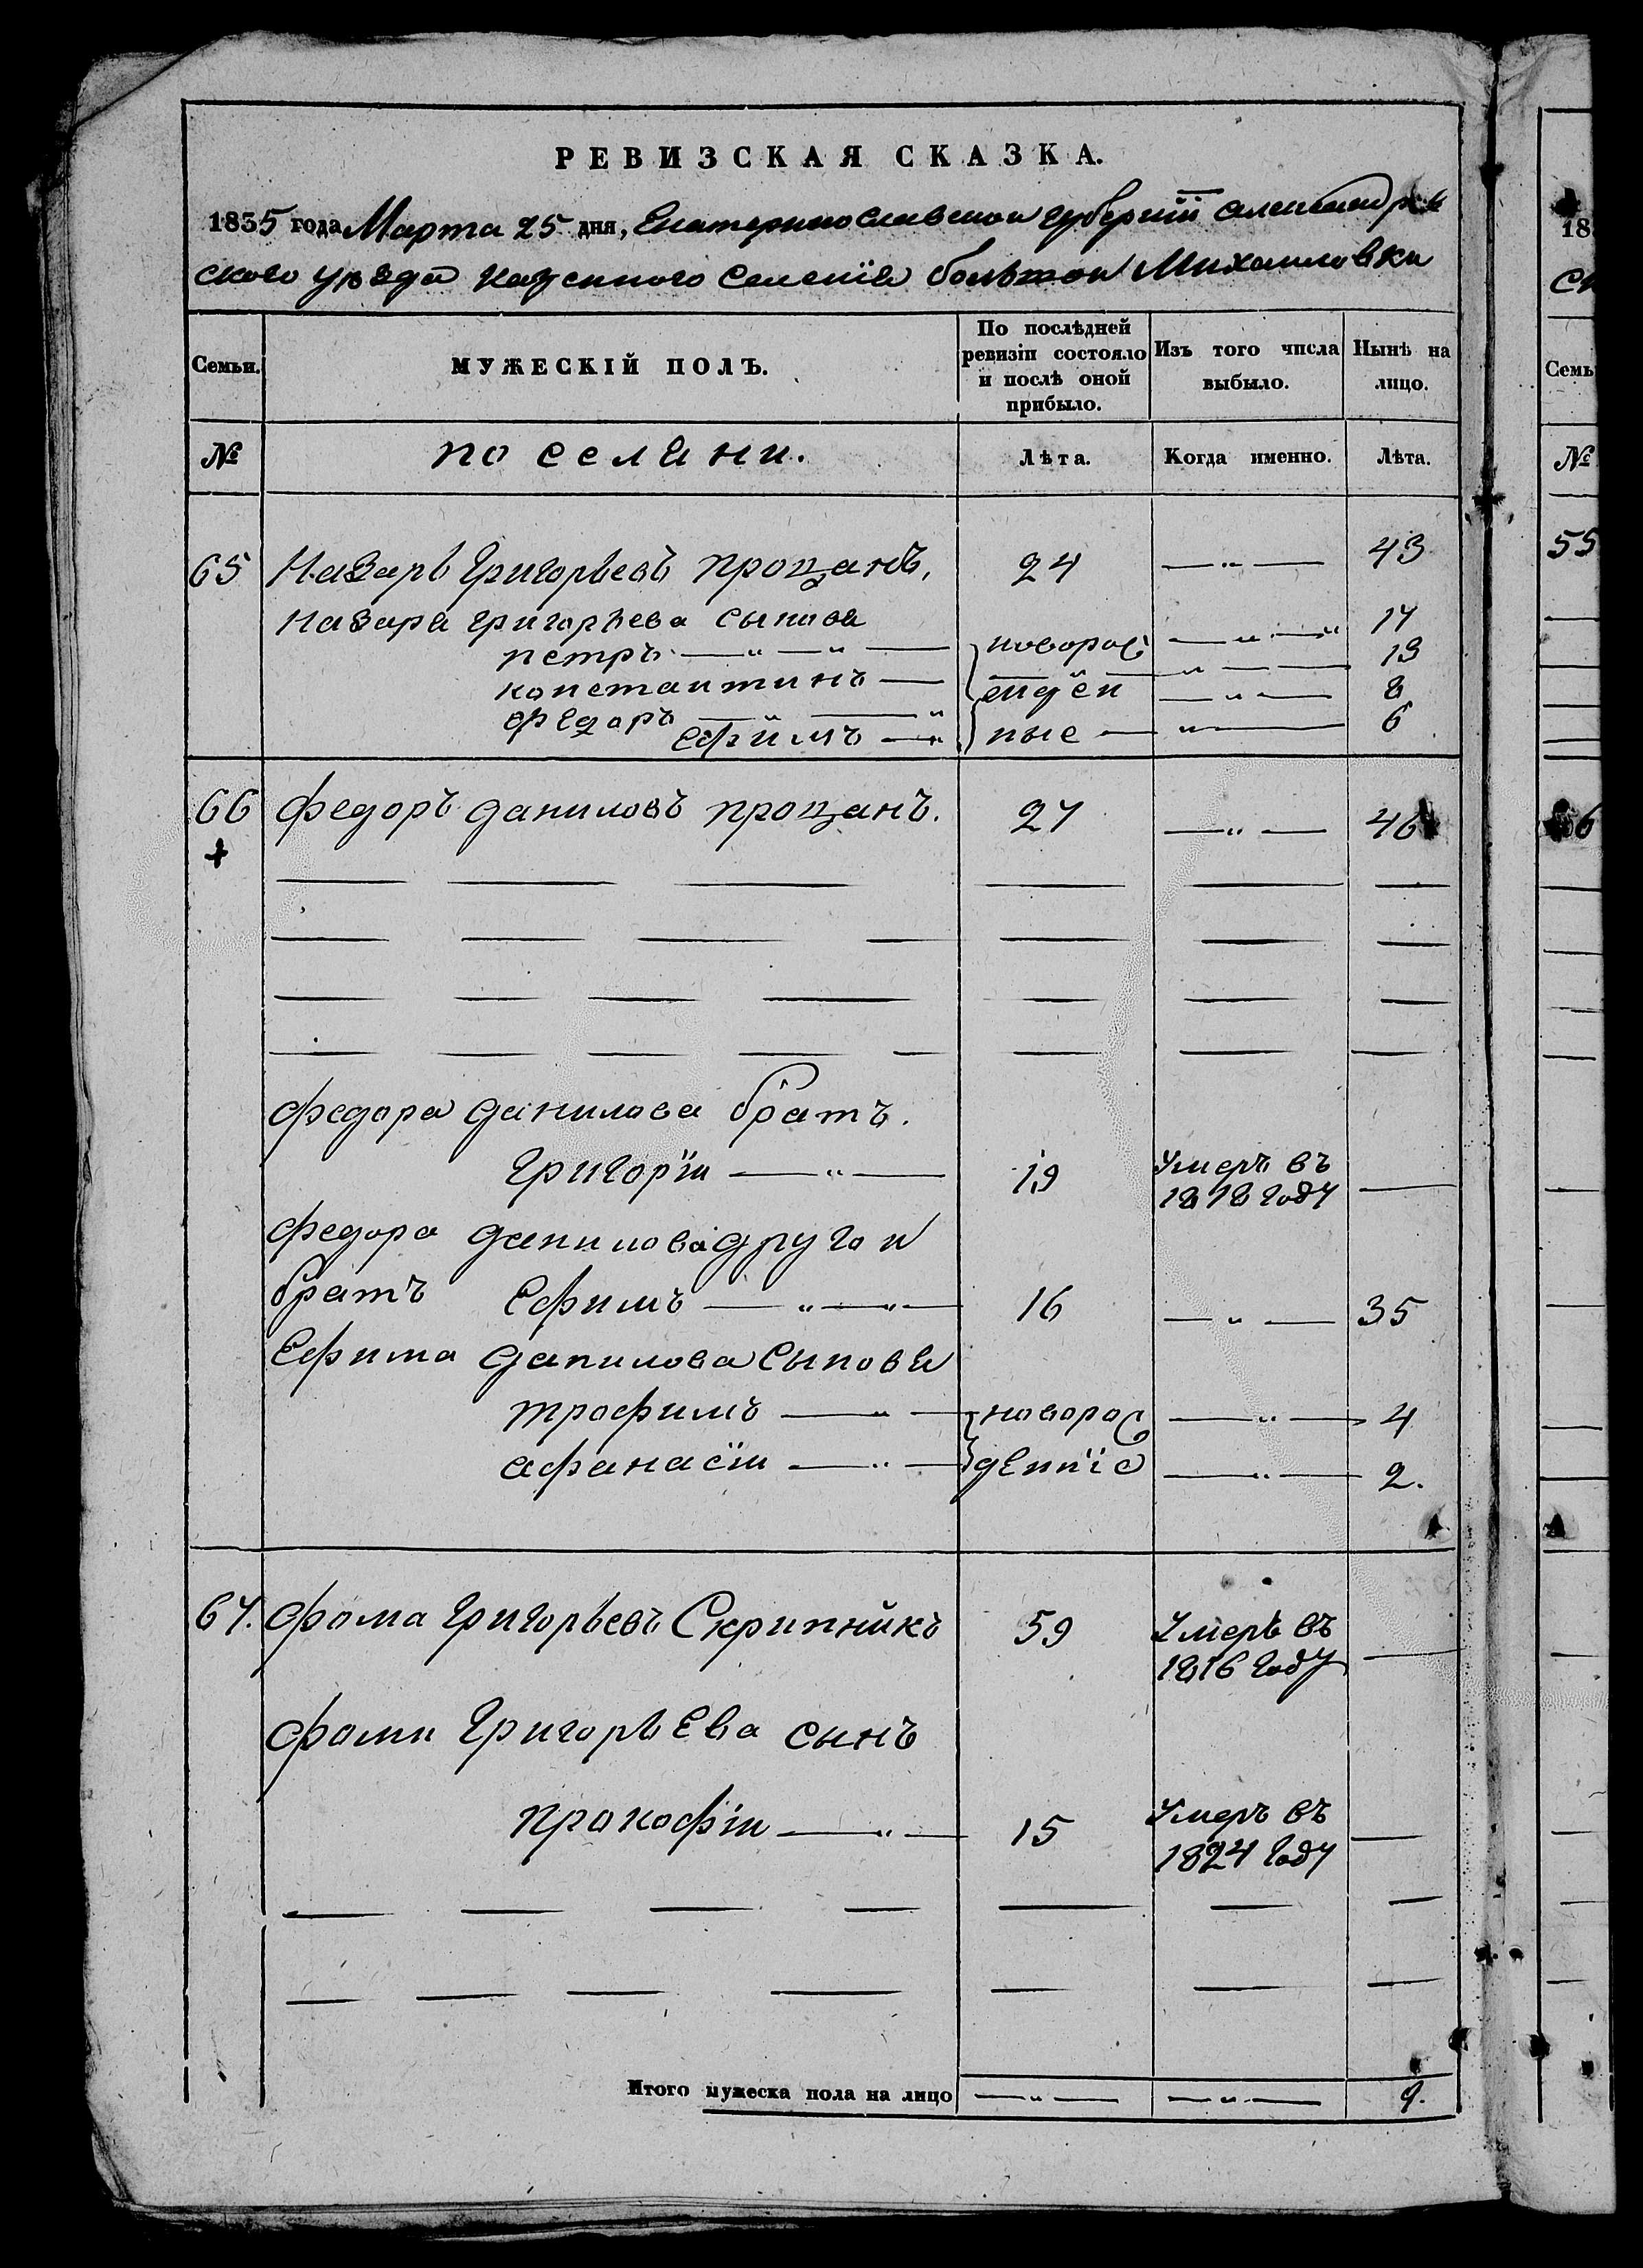 РЕВИЗСКАЯ СКАЗКА.
1835 года Марта 25 дня, Екатеринославской губернїи александров
ского уѣзда казенного селенїя большой Михаиловки
Семьи. МУЖЕСКІЙ ПОЛЪ. По послѣдней ревизіи состояло и послѣ оной прибыло. Изъ того числа выбыло. Нынѣ на лицо.
№ поселяни. Лѣта. Когда именно. Лѣта.
65 Назаръ Григорьевъ процанъ, 24 —„— 43
Назара григорьева сынове
петръ —„—„— новорож —„—„ 17
константинъ — —„— 13
федоръ —„—„ денъ —„— 8
ефимъ —„ ные — „— 6
66 федоръ даниловъ процанъ. 27 —„— 46
+
федора данилова братъ.
григорїи —„— 19 умеръ въ 1818 году —
федора данилова другои
братъ Ефимъ —„—„— 16 —„— 35
Ефима данилова сынове
трофимъ —„— новорож —„— 4
афанасїи —„— деннїе —„— 2.
67. фома григорьевъ Скрипникъ 59 умеръ въ 1816 году —
фоми григорьева сынъ
прокофїи —„— 15 умеръ въ 1824 году —
Итого мужеска пола на лицо —„— —„— 9.
18
Семь
№
55